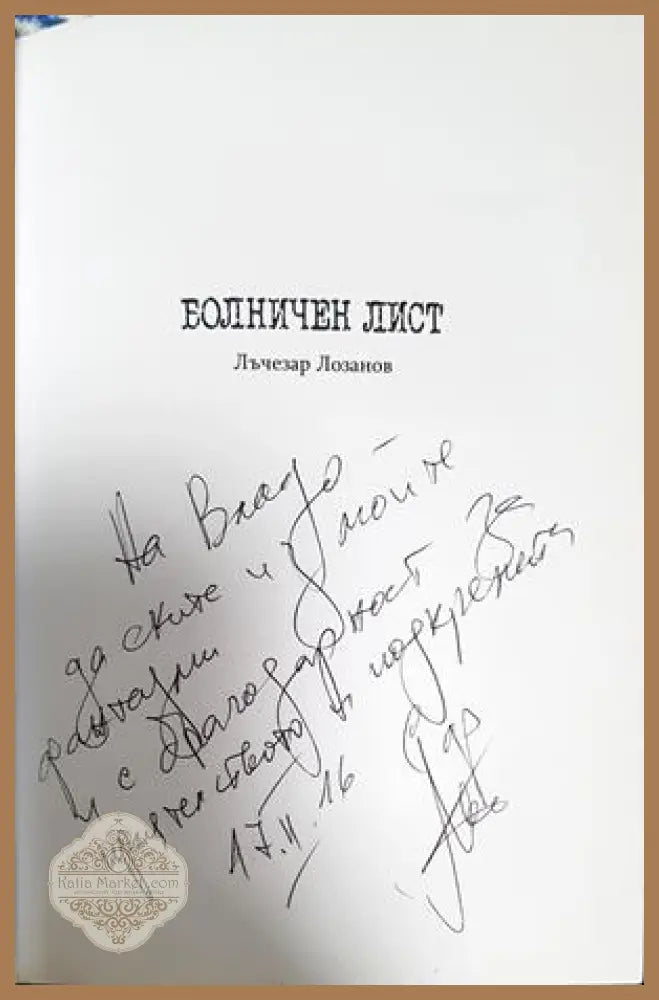 БОЛНИЧЕН ЛИСТ
Лъчезар Лозанов
На Владо –
да ските и моите
фантазии
и с благодарност за
приятелството и подкрепата
17.II.16
Katia Market.com